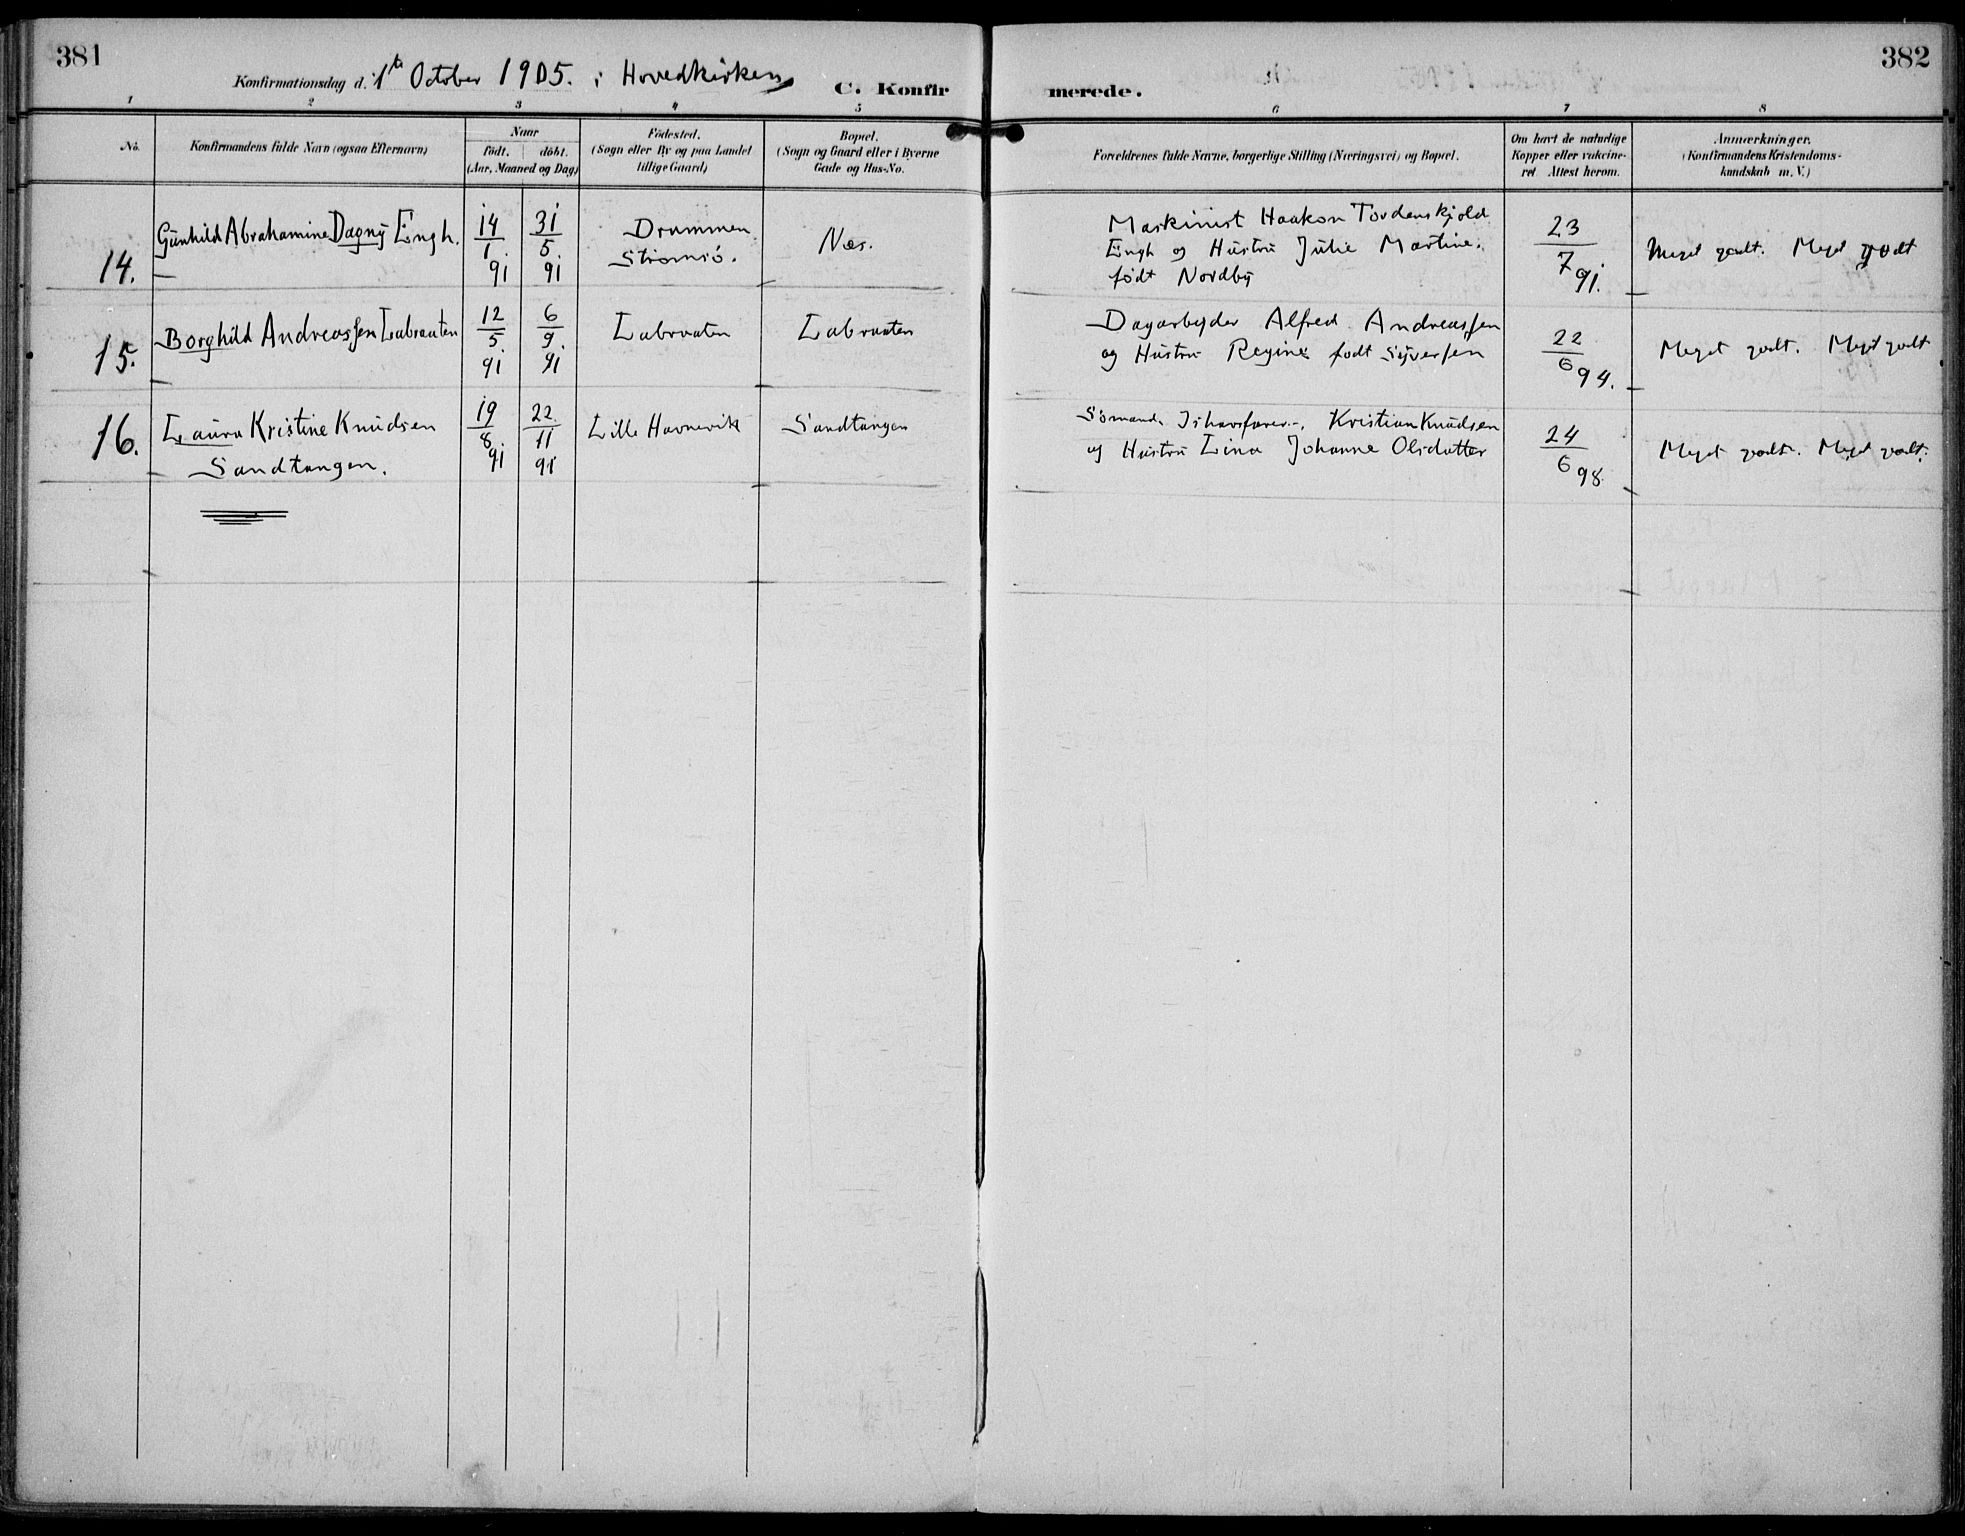 381
382
Konfirmationsdag d. 1te October 1905. i Hovedkirken
C. Konfirmerede.
1 2 3 4 5 6 7 8
No.
Konfirmandens fulde Navn (ogsaa Efternavn)
Naar
født. døbt.
(Aar, Maaned og Dag)
Fødested.
(Sogn eller By og paa Landet
tillige Gaard)
Bopæl.
(Sogn og Gaard eller i Byerne
Gade og Hus-No.
Forældrenes fulde Navne, borgerlige Stilling (Næringsvei) og Bopæl.
Om havt de naturlige
Kopper eller vakcine-
ret. Attest herom.
Anmærkninger.
(Konfirmandens Kristendoms-
kundskab m. V.)
14.
Gunhild Abrahamine Dagny Engh.
14/1 91
31/5 91
Drammen
Strømsø.
Næs.
Maskinist Haakon Tordenskjold
Engh og Hustru Julie Martine.
født Nordby
23/7 91.
Meget godt. Meget godt
15.
Borghild Andreassen Labraaten
12/5 91
6/9. 91
Labraaten
Labraaten
Dagarbejder Alfred Andreassen
og Hustru Regine født Syversen
22/6 94.
Meget godt. Meget godt
16.
Laura Kristine Knudsen
Sandtangen.
19/8. 91
22/11 91
Lille Havnevik
Sandtangen
Sømand, Ishavsfarer, Kristian Knudsen
og Hustru Lina Johanne Olsdatter
24/6 98.
Meget godt. Meget godt.